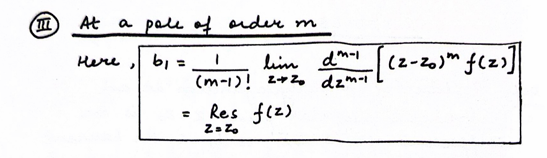 III At a pole of order m
Here, b₁ = 1/(m-1)! lim z→z₀ d^(m-1)/dz^(m-1) [(z-z₀)^m f(z)]
= Res z=z₀ f(z)